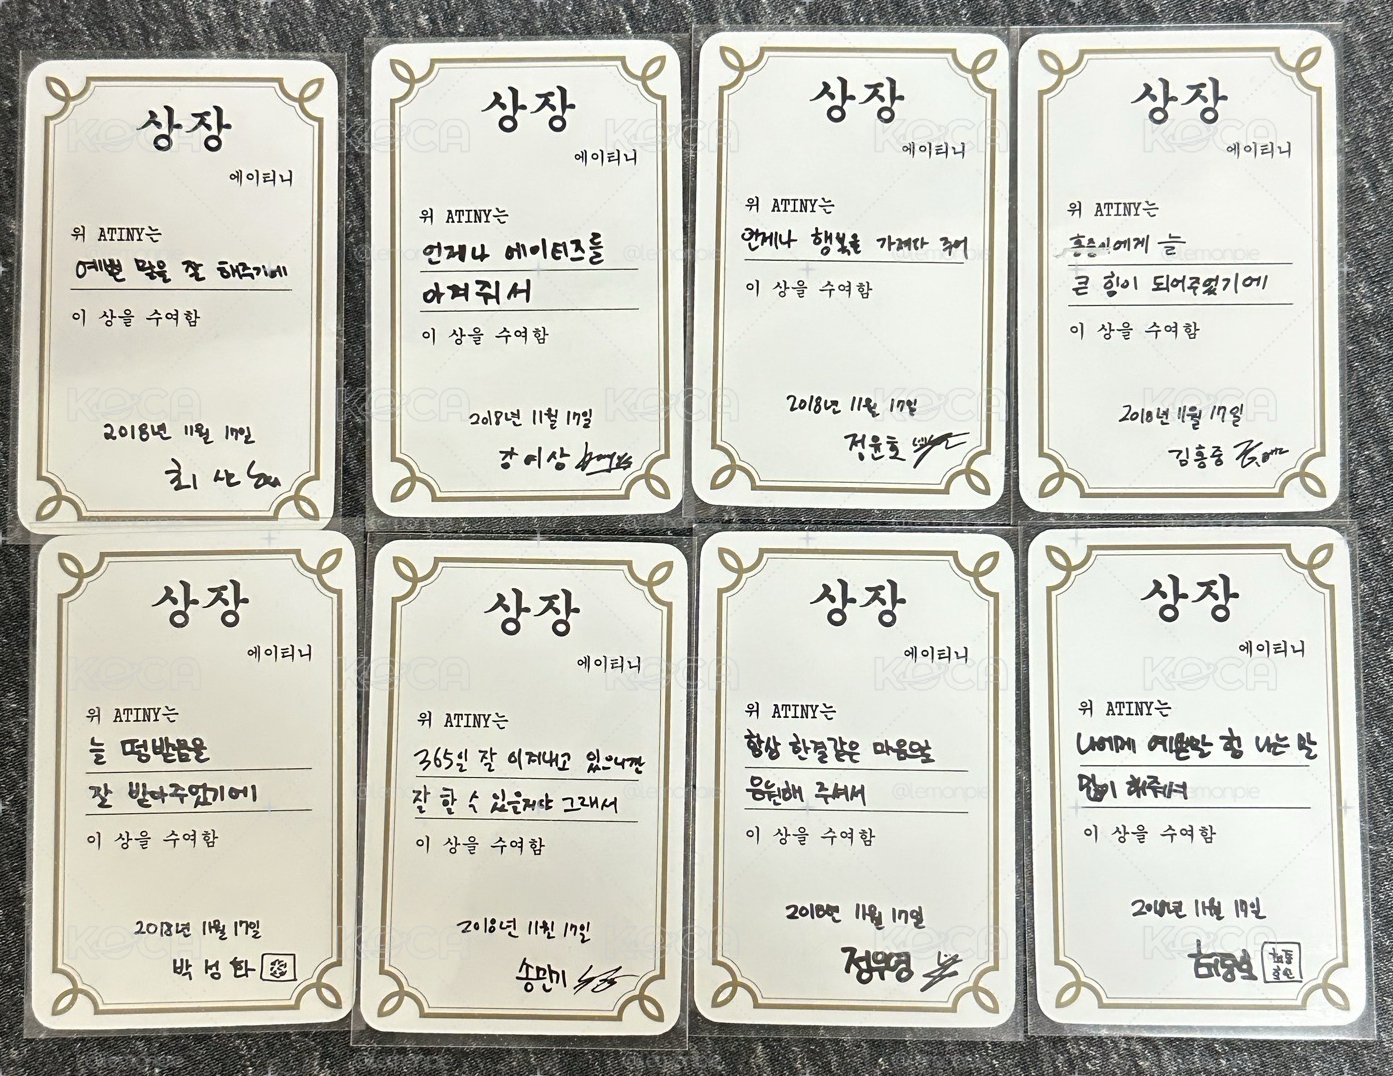 상장
에이티니
위 ATINY는
예쁜 말을 잘 해주기에
이 상을 수여함
2018년 11월 17일
최 산
상장
에이티니
위 ATINY는
언제나 에이티즈를
아껴줘서
이 상을 수여함
2018년 11월 17일
강여상
상장
에이티니
위 ATINY는
언제나 행복을 가져다 주어
이 상을 수여함
2018년 11월 17일
정윤호
상장
에이티니
위 ATINY는
홍중이에게 늘
큰 힘이 되어주었기에
이 상을 수여함
2018년 11월 17일
김홍중
상장
에이티니
위 ATINY는
늘 떵받음을
잘 받아주었기에
이 상을 수여함
2018년 11월 17일
박성화
상장
에이티니
위 ATINY는
365일 잘 이겨내고 있으니깐
잘 할 수 있을거야 그래서
이 상을 수여함
2018년 11월 17일
송민기
상장
에이티니
위 ATINY는
항상 한결같은 마음으로
응원해 주셔서
이 상을 수여함
2018년 11월 17일
정우영
상장
에이티니
위 ATINY는
나에게 예쁜말 힘 나는 말
많이 해줘서
이 상을 수여함
2018년 11월 17일
KOCA
@lemonpie